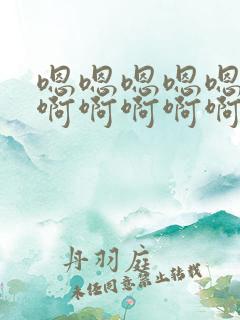 嗯嗯嗯嗯嗯
啊啊啊啊啊
丹羽庭
未经同意禁止转载